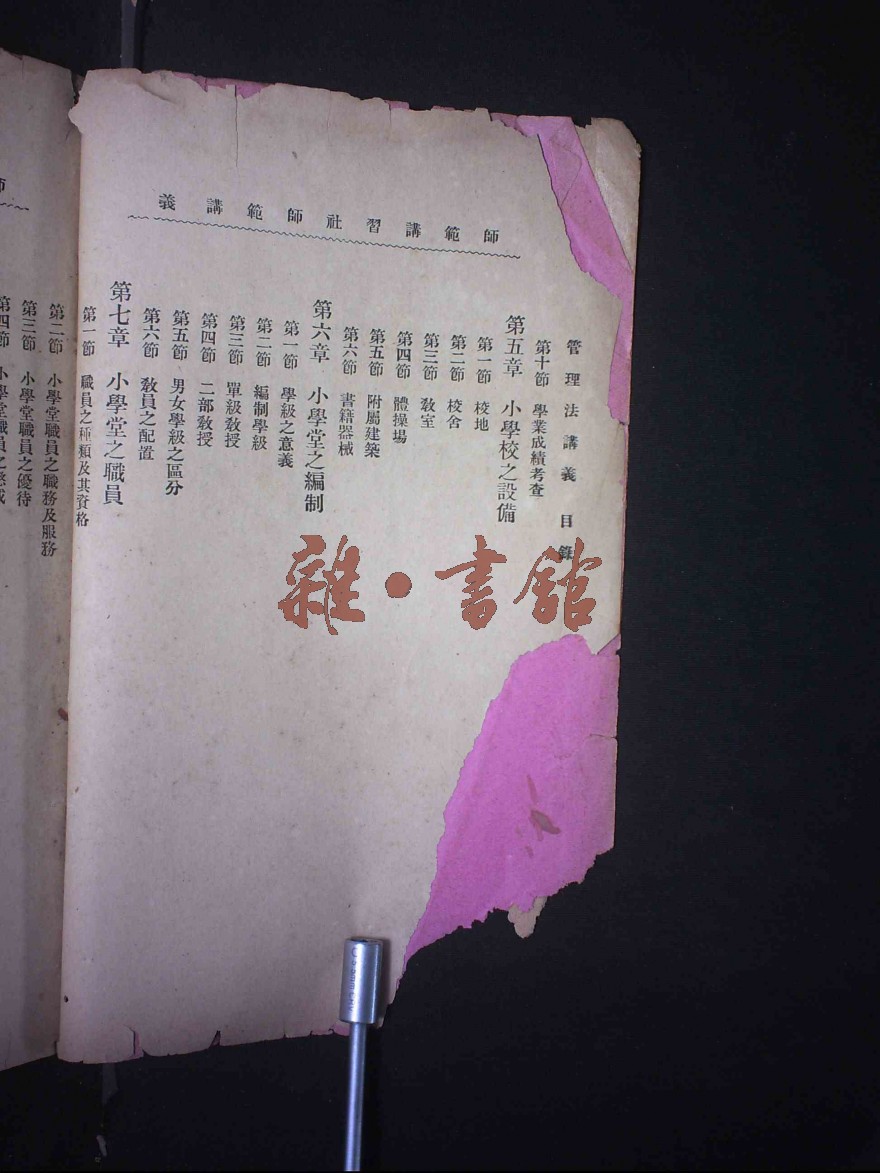 師範講習社師範講義
管理法講義 目錄
第十節 學業成績考查
第五章 小學校之設備
第一節 校地
第二節 校舍
第三節 教室
第四節 體操場
第五節 附屬建築
第六節 書籍器械
第六章 小學堂之編制
第一節 學級之意義
第二節 編制學級
第三節 單級教授
第四節 二部教授
第五節 男女學級之區分
第六節 教員之配置
第七章 小學堂之職員
第一節 職員之種類及其資格
第二節 小學堂職員之職務及服務
第三節 小學堂職員之優待
第四節 小學堂職員之懲戒
師
雜·書館